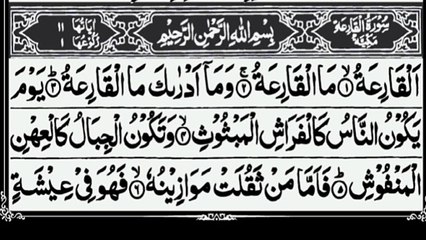 سُوْرَةُ الْقَارِعَةِ مَكِّيَّةٌ
بِسْمِ اللّٰهِ الرَّحْمٰنِ الرَّحِيْمِ
اٰيَاتُهَا ١١
رُكُوْعُهَا ١
اَلْقَارِعَةُ ۙ﴿١﴾ مَا الْقَارِعَةُ ۚ﴿٢﴾ وَمَآ اَدْرٰىكَ مَا الْقَارِعَةُ ؕ﴿٣﴾ يَوْمَ
يَكُوْنُ النَّاسُ كَالْفَرَاشِ الْمَبْثُوْثِ ۙ﴿٤﴾ وَتَكُوْنُ الْجِبَالُ كَالْعِهْنِ
الْمَنْفُوْشِ ؕ﴿٥﴾ فَاَمَّا مَنْ ثَقُلَتْ مَوَازِيْنُهٗ ۙ﴿٦﴾ فَهُوَ فِيْ عِيْشَةٍ